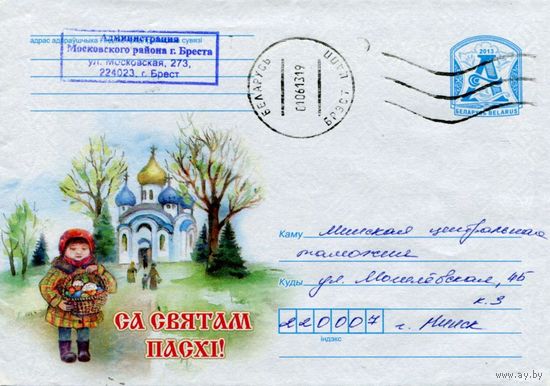 адрас адпраўшчыка
сувязі
Администрация
Московского района г. Бреста
ул. Московская, 273,
224023, г. Брест
БЕЛАРУСЬ
01061319
БРЭСТ
2013
А
БЕЛАРУСЬ BELARUS
Каму Минская центральная
таможня
Куды ул. Могилёвская, 45
к. 3
220007 г. Минск
індэкс
СА СВЯТАМ
ПАСХІ!
www.ay.by